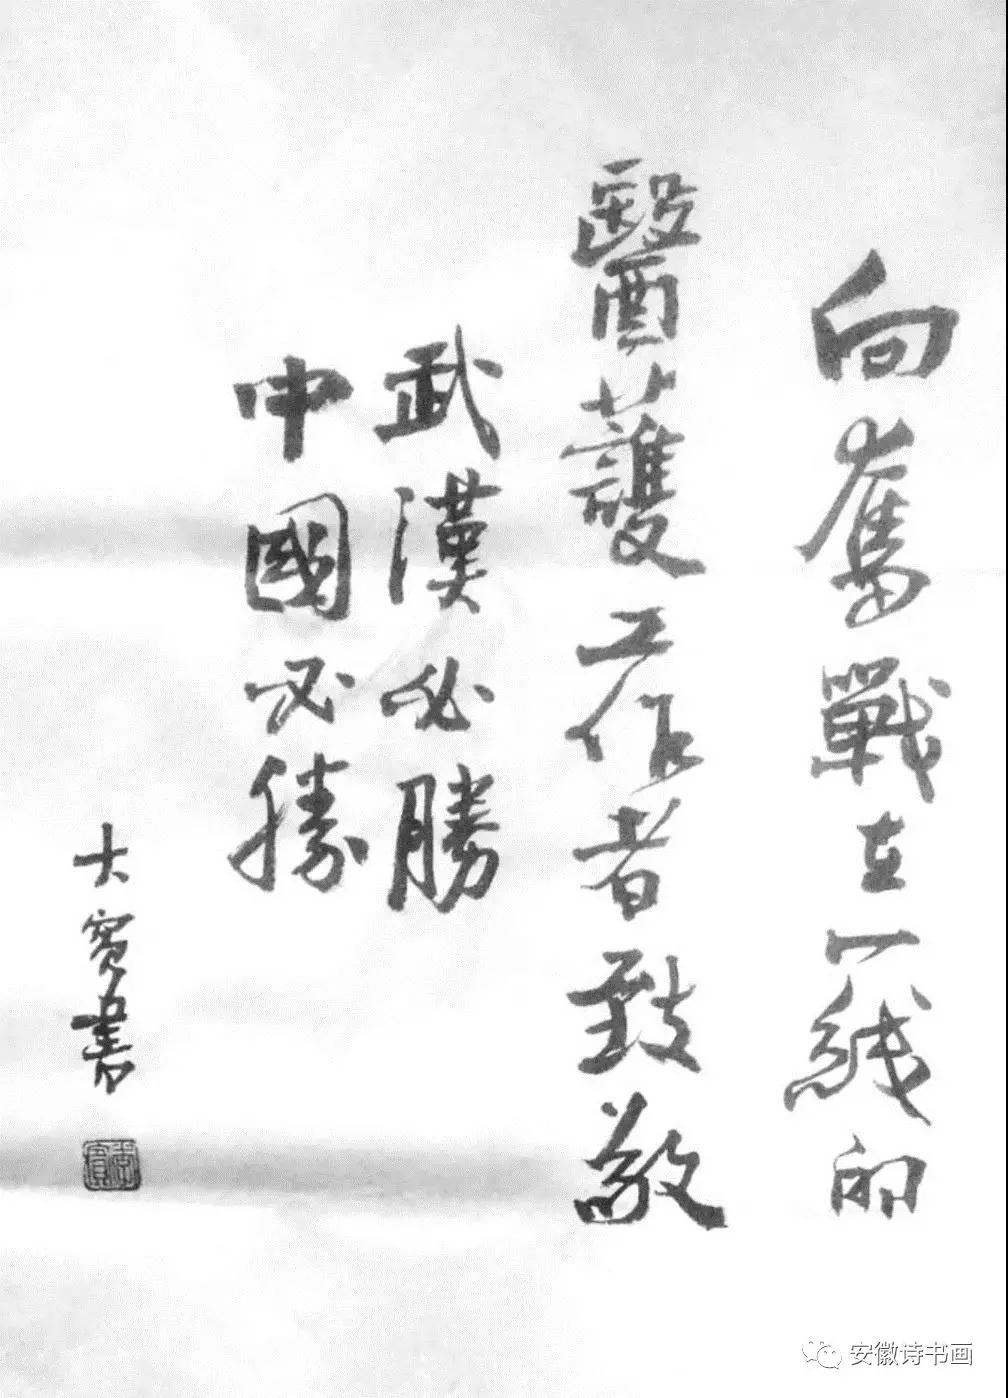 向奮戰在一綫的
醫護工作者致敬
武漢必勝
中國必勝
大書
安徽诗书画